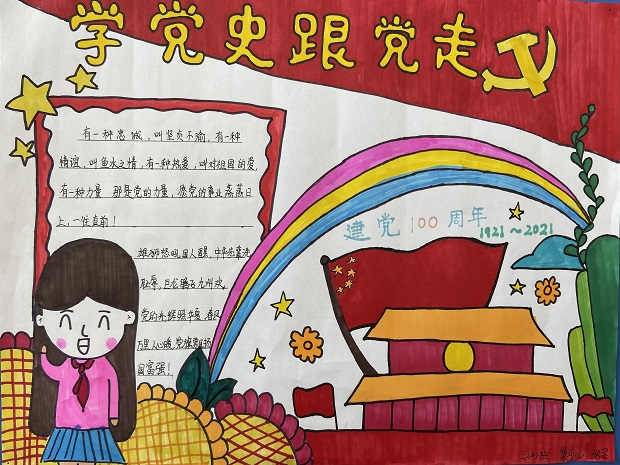 学党史跟党走
有一种忠诚，叫坚贞不渝，有一种
情谊，叫鱼水之情，有一种热爱，叫对祖国的爱，
有一种力量 那是党的力量，愿党的事业蒸蒸日
上，一往直前！
雄狮怒吼国人醒，中华
耻辱，巨龙腾飞九州欢，
党的光辉照华夏 春风
万里人心暖，党旗
国富强！
建党100周年
1921～2021